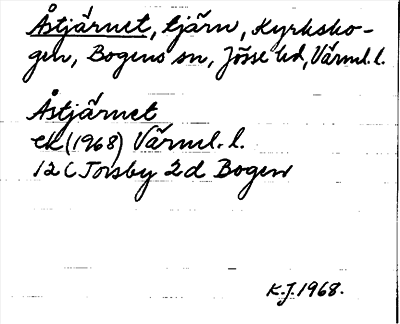 Åstjärnet, tjärn, Kyrksko-
gen, Bogens sn, Jösse hd, Värml. l.
Åstjärnet
ek (1968) Värml. l.
12 C Torsby 2d Bogen
K.J. 1968.